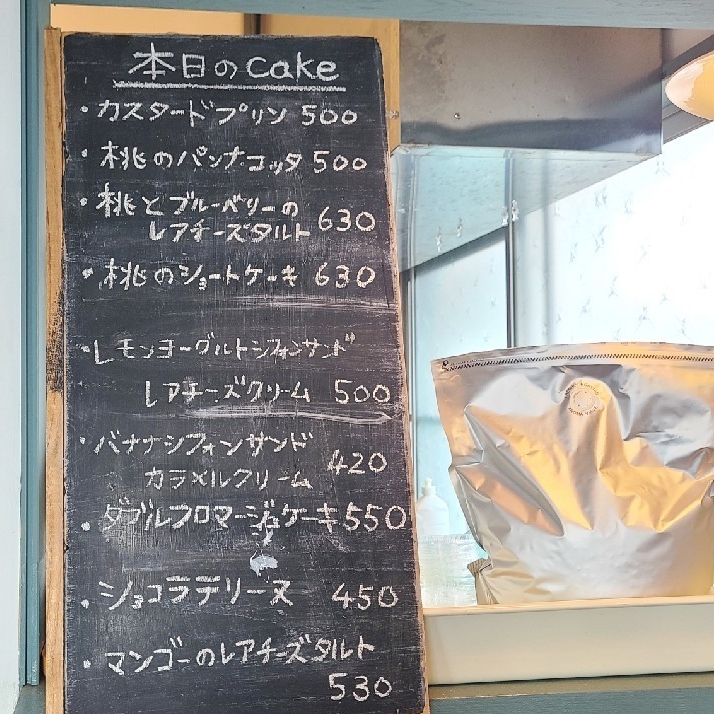 本日のcake
・カスタードプリン 500
・桃のパンナコッタ 500
・桃とブルーベリーの
レアチーズタルト 630
・桃のショートケーキ 630
・レモンヨーグルトシフォンサンド
レアチーズクリーム 500
・バナナシフォンサンド
カラメルクリーム 420
・ダブルフロマージュケーキ 550
・ショコラテリーヌ 450
・マンゴーのレアチーズタルト
530